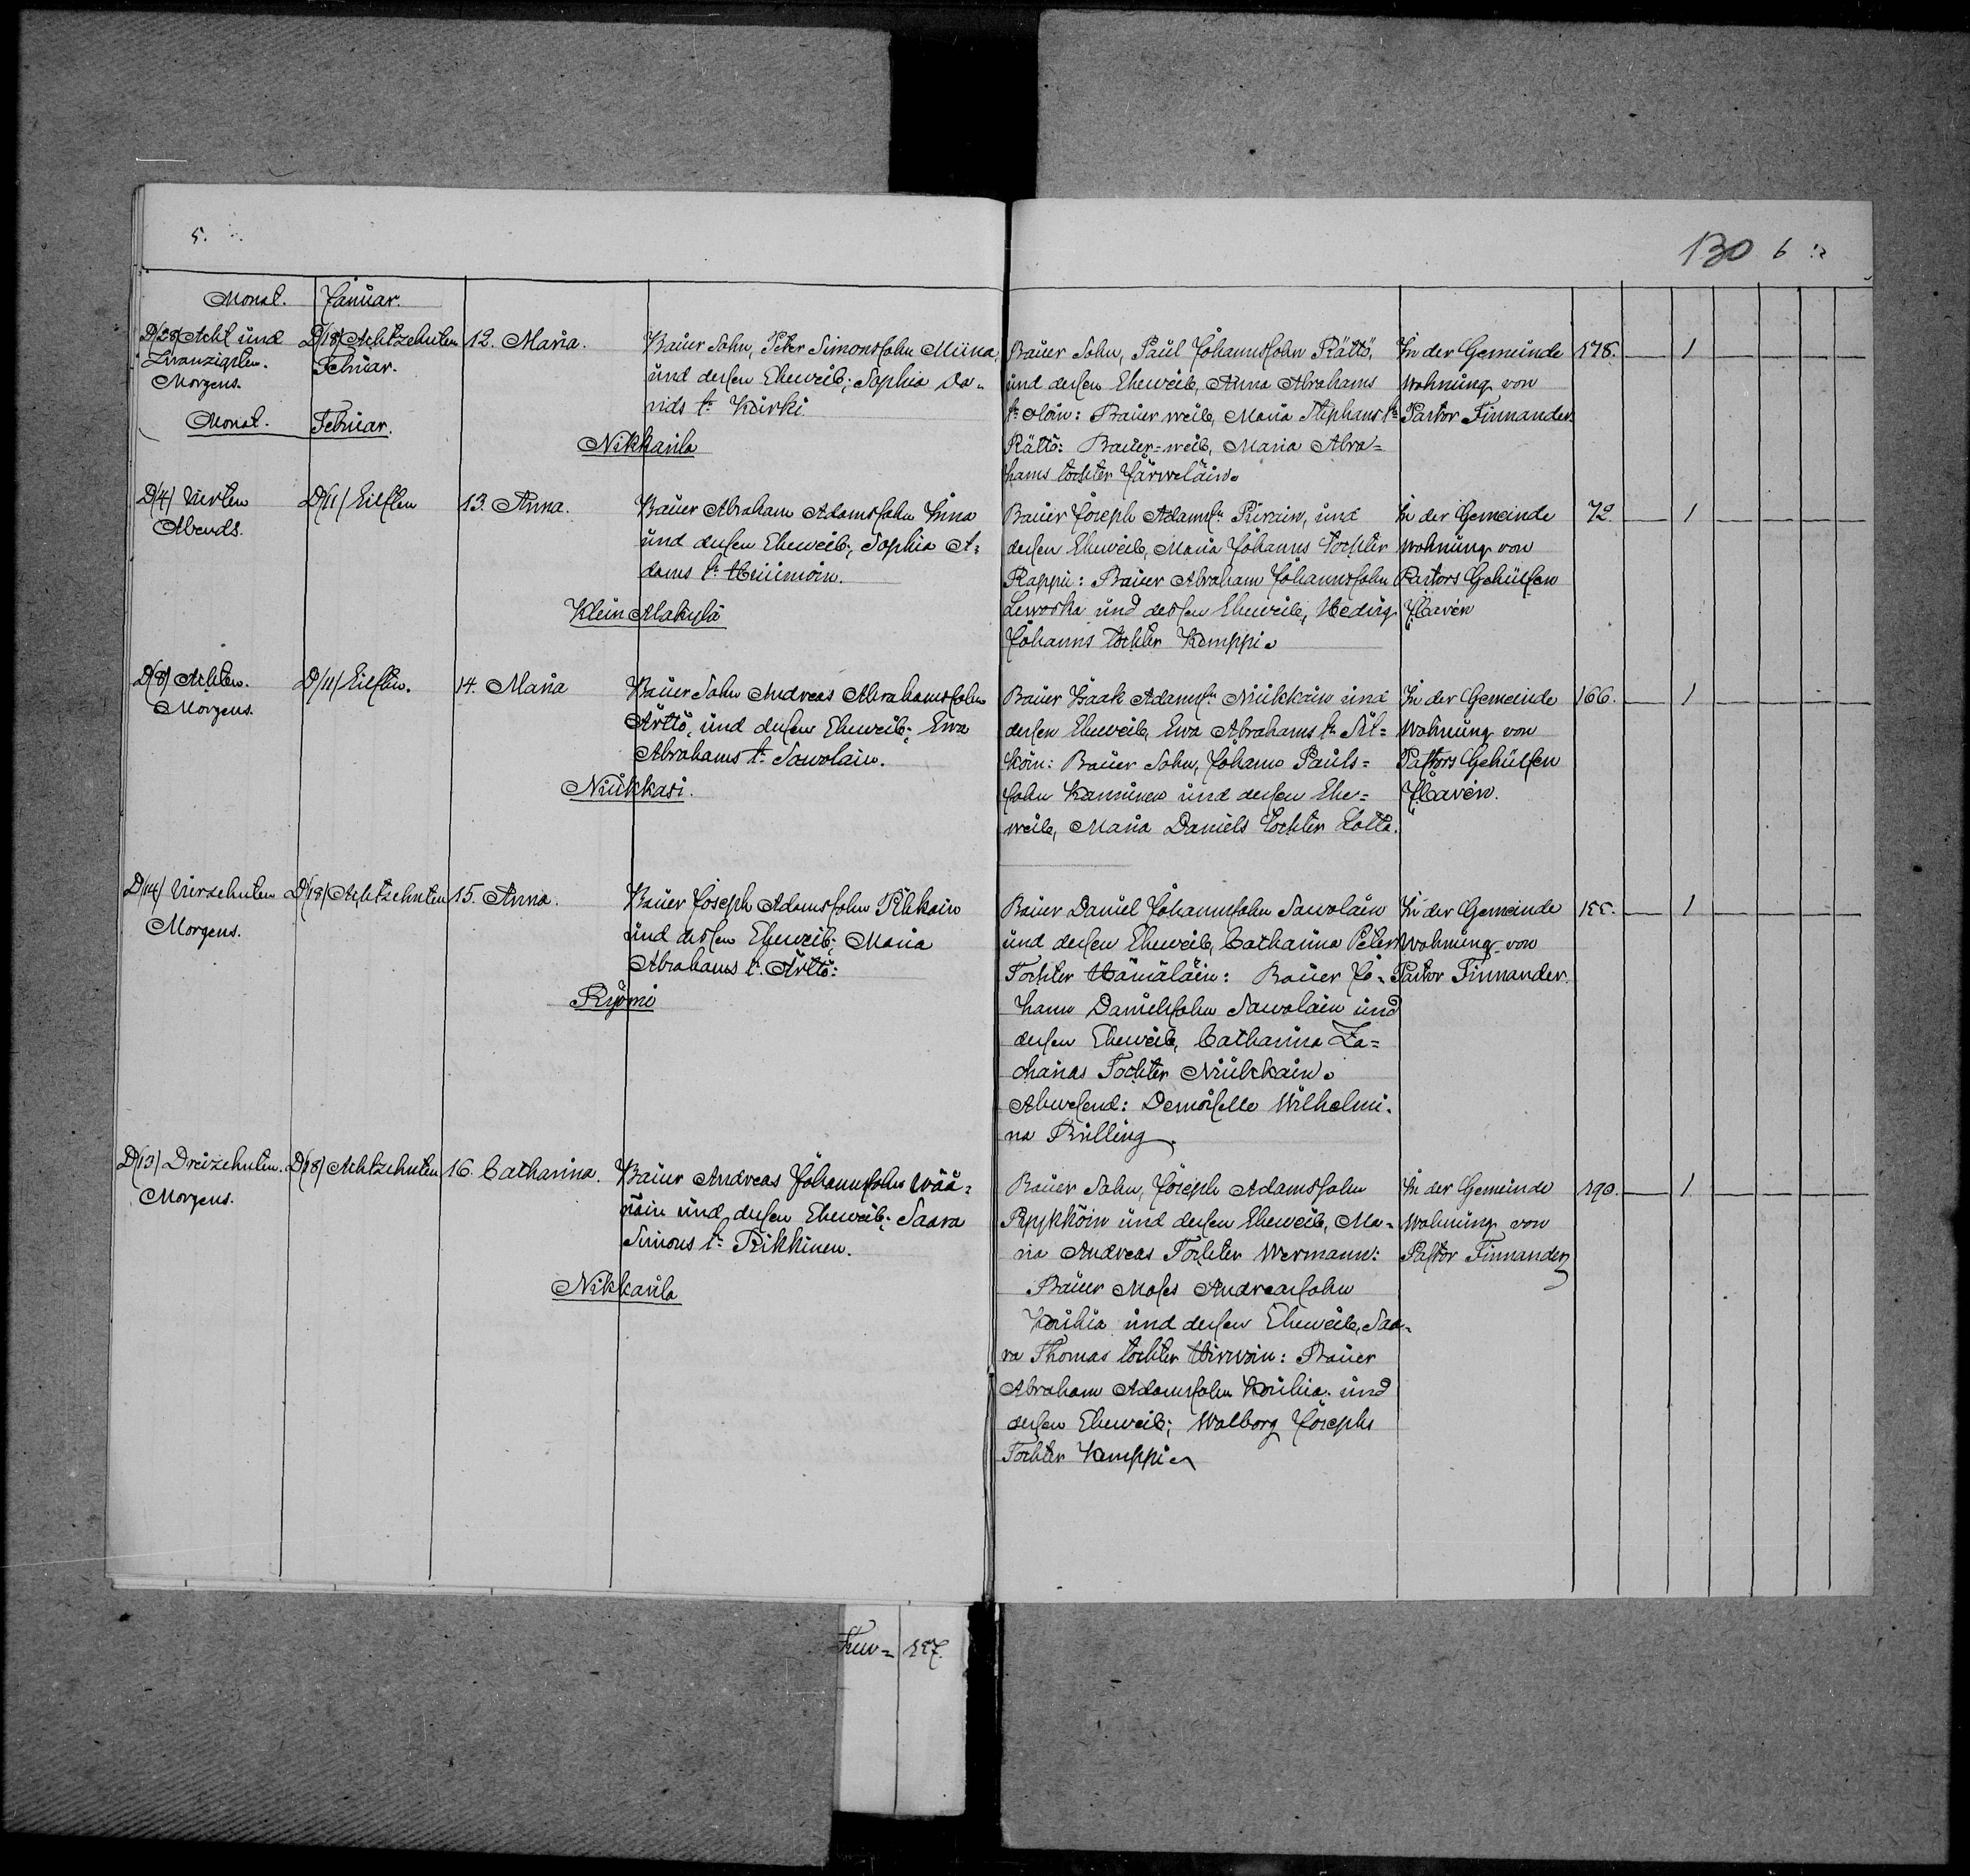 5.
130 6
Monat. Januar.
D/28/ Acht und
Zwanzigsten.
Morgens.
D/18/ Achtzehnten
Februar.
12. Maria.
Bauer Sohn, Peter Simonssohn Miina,
und dessen Eheweib; Sophia Da-
vids t. Kurki
Nikkarila
Bauer Sohn, Paul Johannssohn Rättö,
und dessen Eheweib, Anna Abrahams
Bauer weib, Maria Stephans t.
Rättö: Bauer-weib, Maria Abra-
hams tochter Järweläin.
In der Gemeinde
Wohnung von
Pastor Finnander
178. 1
Monat. Februar.
D/4/ Vierten
Abends.
D/11/ Eilften
13. Anna.
Bauer Abraham Adamssohn Inna
und dessen Eheweib; Sophia A-
dams t.
Klein Mäkylä
Bauer Joseph Adamss. Pirain, und
dessen Eheweib, Maria Johanns tochter
Rappu: Bauer Abraham Johannssohn
Lewoska und dessen Eheweib, Hedwig
Johanns tochter Kemppi.
In der Gemeinde
Wohnung von
Pastors Gehülfen
72. 1
D/8/ Achten.
Morgens.
D/11/ Eilften.
14. Maria
Bauer Sohn Andreas Abrahamssohn
Ärttö, und dessen Eheweib; Ewa
Abrahams t. Sawolain.
Niukkasi.
Bauer Isaak Adamss. Niukkain und
dessen Eheweib, Ewa Abrahams t. Sil-
köin: Bauer Sohn, Johann Pauls-
sohn Kanninen und dessen Ehe-
weib, Maria Daniels tochter Lotta.
In der Gemeinde
Wohnung von
Pastors Gehülfen
166. 1
D/14/ Vierzehnten
Morgens.
D/18/ Achtzehnten
15. Anna.
Bauer Joseph Adamssohn Pukkain
und dessen Eheweib; Maria
Abrahams t. Ärttö:
Ryömi
Bauer Daniel Johannssohn Sawolain
und dessen Eheweib, Catharina Peters
Tochter Hämäläin: Bauer Jo-
hann Danielssohn Sawolain und
dessen Eheweib, Catharina Za-
charias Tochter Niukkain.
Abwesend: Demoiselle Wilhelmi-
na Rülling
In der Gemeinde
Wohnung von
Pastor Finnander.
155. 1
D/13/ Dreizehnten.
Morgens.
D/18/ Achtzehnten
16. Catharina.
Bauer Andreas Johannssohn Wää-
näin und dessen Eheweib; Saara
Simons t. Pikkinen.
Nikkarila
Bauer Sohn, Joseph Adamssohn
Ryykköin und dessen Eheweib, Ma-
ria Andreas Tochter Wermann:
Bauer Moses Andreassohn
Kouhia und dessen Eheweib, Saa-
ra Thomas tochter Hirwoin: Bauer
Abraham Adamssohn Kouhia und
dessen Eheweib; Walborg Josephs
Tochter Kemppi
In der Gemeinde
Wohnung von
Pastor Finnander
190. 1